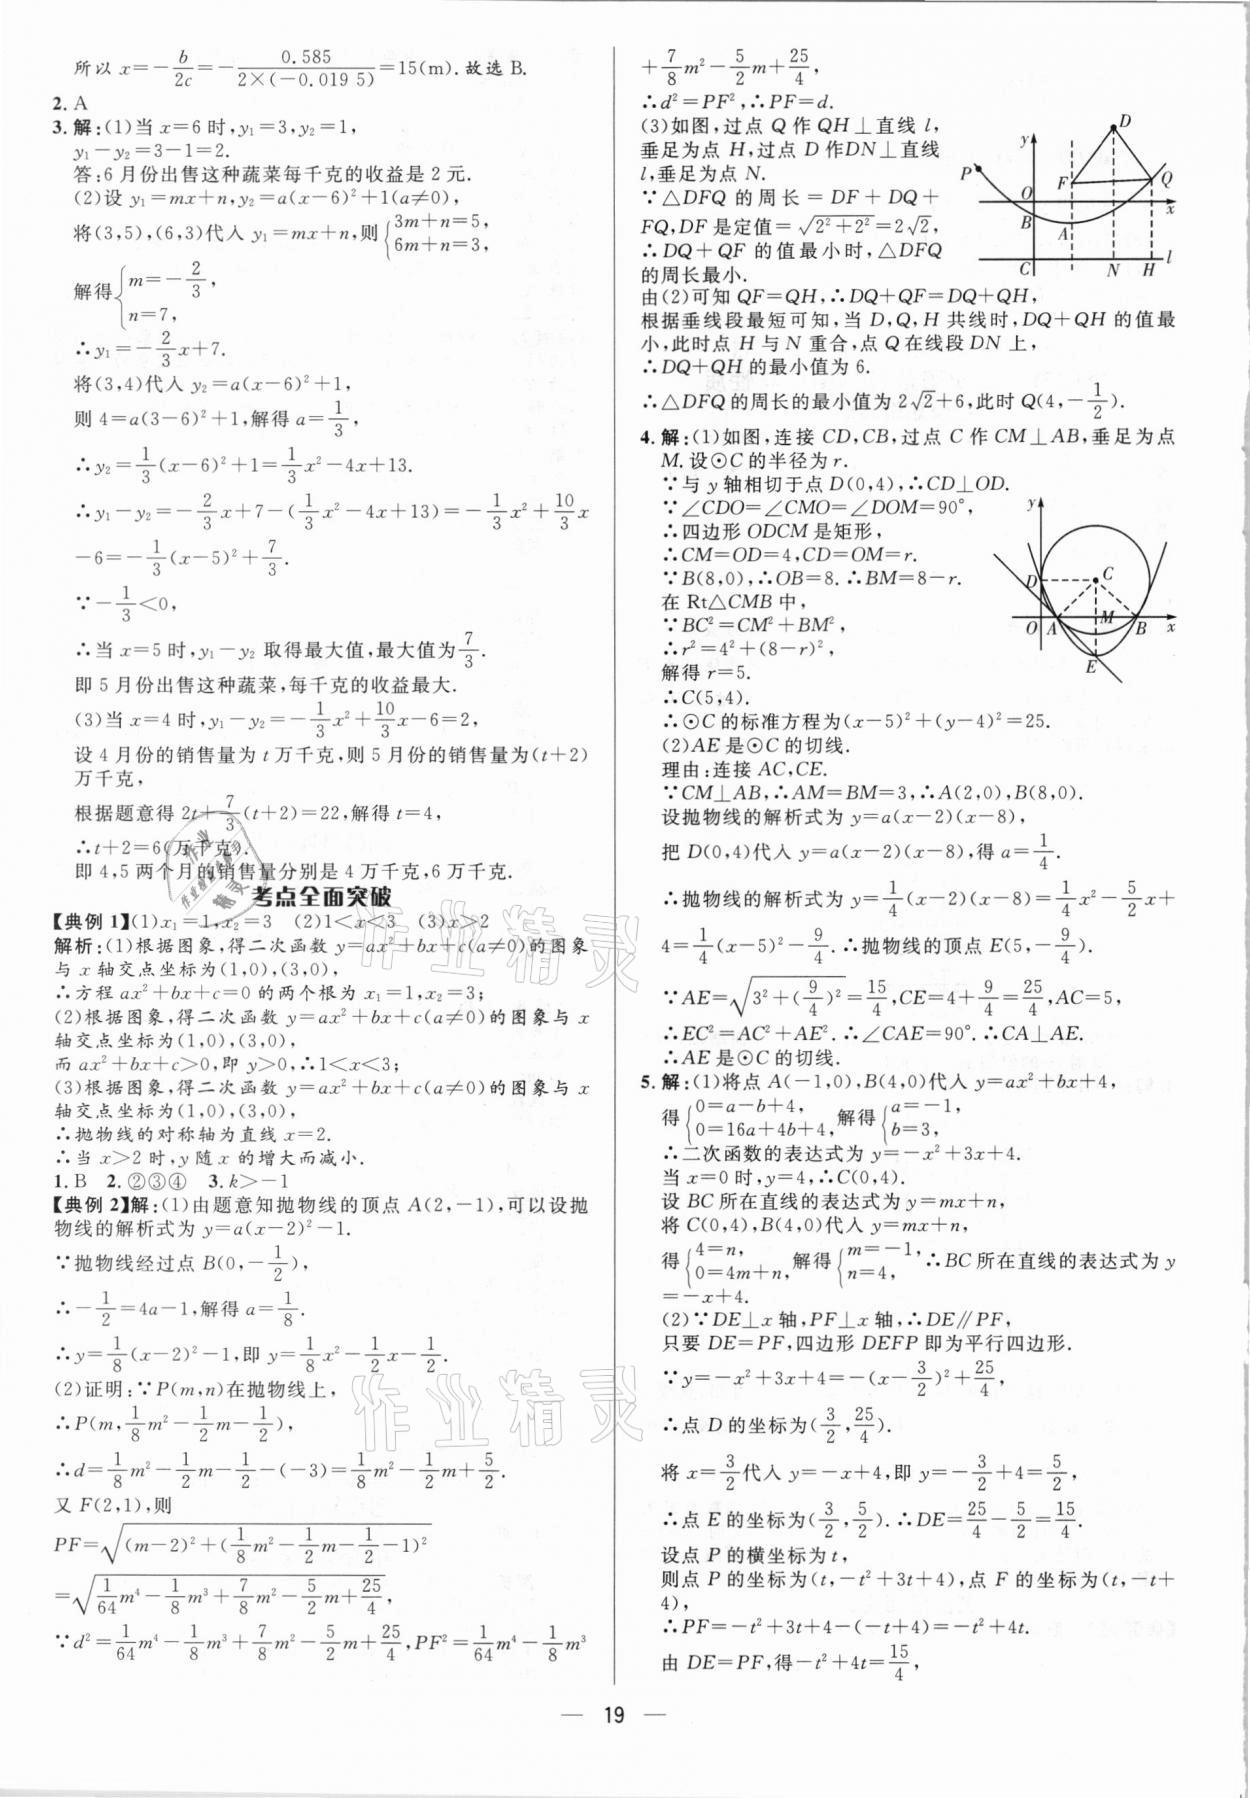 所以 x=-b/2c=-0.585/(2×(-0.019 5))=15(m).故选 B.
2. A
3. 解:(1)当 x=6 时,y₁=3,y₂=1,
y₁-y₂=3-1=2.
答:6 月份出售这种蔬菜每千克的收益是 2 元.
(2)设 y₁=mx+n,y₂=a(x-6)²+1(a≠0),
将(3,5),(6,3)代入 y₁=mx+n,则{3m+n=5, 6m+n=3,
解得{m=-2/3, n=7,
∴y₁=-2/3x+7.
将(3,4)代入 y₂=a(x-6)²+1,
则 4=a(3-6)²+1,解得 a=1/3,
∴y₂=1/3(x-6)²+1=1/3x²-4x+13.
∴y₁-y₂=-2/3x+7-(1/3x²-4x+13)=-1/3x²+10/3x
-6=-1/3(x-5)²+7/3.
∵-1/3<0,
∴当 x=5 时,y₁-y₂ 取得最大值,最大值为7/3.
即 5 月份出售这种蔬菜,每千克的收益最大.
(3)当 x=4 时,y₁-y₂=-1/3x²+10/3x-6=2,
设 4 月份的销售量为 t 万千克,则 5 月份的销售量为(t+2)
万千克,
根据题意得 2t+7/3(t+2)=22,解得 t=4,
∴t+2=6(万千克).
即 4,5 两个月的销售量分别是 4 万千克,6 万千克.
考点全面突破
【典例 1】(1)x₁=1,x₂=3 (2)1<x<3 (3)x>2
解析:(1)根据图象,得二次函数 y=ax²+bx+c(a≠0)的图象
与 x 轴交点坐标为(1,0),(3,0),
∴方程 ax²+bx+c=0 的两个根为 x₁=1,x₂=3;
(2)根据图象,得二次函数 y=ax²+bx+c(a≠0)的图象与 x
轴交点坐标为(1,0),(3,0),
而 ax²+bx+c>0,即 y>0,∴1<x<3;
(3)根据图象,得二次函数 y=ax²+bx+c(a≠0)的图象与 x
轴交点坐标为(1,0),(3,0),
∴抛物线的对称轴为直线 x=2.
∴当 x>2 时,y 随 x 的增大而减小.
1. B 2. ②③④ 3. k>-1
【典例 2】解:(1)由题意知抛物线的顶点 A(2,-1),可以设抛
物线的解析式为 y=a(x-2)²-1.
∵抛物线经过点 B(0,-1/2),
∴-1/2=4a-1,解得 a=1/8.
∴y=1/8(x-2)²-1,即 y=1/8x²-1/2x-1/2.
(2)证明:∵P(m,n)在抛物线上,
∴P(m,1/8m²-1/2m-1/2),
∴d=1/8m²-1/2m-1/2-(-3)=1/8m²-1/2m+5/2.
又 F(2,1),则
PF=√((m-2)²+(1/8m²-1/2m-1/2-1)²)
=√(1/64m⁴-1/8m³+7/8m²-5/2m+25/4),
∵d²=1/64m⁴-1/8m³+7/8m²-5/2m+25/4,PF²=1/64m⁴-1/8m³
+7/8m²-5/2m+25/4,
∴d²=PF²,∴PF=d.
(3)如图,过点 Q 作 QH⊥直线 l,
垂足为点 H,过点 D 作DN⊥直线
l,垂足为点 N.
∵△DFQ 的周长=DF+DQ+
FQ,DF 是定值=√(2²+2²)=2√2,
∴DQ+QF 的值最小时,△DFQ
的周长最小.
y
D
P
F
Q
O
x
B
A
C
N
H
l
由(2)可知 QF=QH,∴DQ+QF=DQ+QH,
根据垂线段最短可知,当 D,Q,H 共线时,DQ+QH 的值最
小,此时点 H 与 N 重合,点 Q 在线段 DN 上,
∴DQ+QH 的最小值为 6.
∴△DFQ 的周长的最小值为 2√2+6,此时 Q(4,-1/2).
4. 解:(1)如图,连接 CD,CB,过点 C 作 CM⊥AB,垂足为点
M.设⊙C 的半径为 r.
∵与 y 轴相切于点 D(0,4),∴CD⊥OD.
∵∠CDO=∠CMO=∠DOM=90°,
∴四边形 ODCM 是矩形,
∴CM=OD=4,CD=OM=r.
∵B(8,0),∴OB=8.∴BM=8-r.
在 Rt△CMB 中,
∵BC²=CM²+BM²,
∴r²=4²+(8-r)²,
解得 r=5.
∴C(5,4).
y
D
C
O
A
M
B
x
E
∴⊙C 的标准方程为(x-5)²+(y-4)²=25.
(2)AE 是⊙C 的切线.
理由:连接 AC,CE.
∵CM⊥AB,∴AM=BM=3,∴A(2,0),B(8,0).
设抛物线的解析式为 y=a(x-2)(x-8),
把 D(0,4)代入 y=a(x-2)(x-8),得 a=1/4.
∴抛物线的解析式为 y=1/4(x-2)(x-8)=1/4x²-5/2x+
4=1/4(x-5)²-9/4.∴抛物线的顶点 E(5,-9/4).
∵AE=√(3²+(9/4)²)=15/4,CE=4+9/4=25/4,AC=5,
∴EC²=AC²+AE².∴∠CAE=90°.∴CA⊥AE.
∴AE 是⊙C 的切线.
5. 解:(1)将点 A(-1,0),B(4,0)代入 y=ax²+bx+4,
得{0=a-b+4, 0=16a+4b+4,解得{a=-1, b=3,
∴二次函数的表达式为 y=-x²+3x+4.
当 x=0 时,y=4,∴C(0,4).
设 BC 所在直线的表达式为 y=mx+n,
将 C(0,4),B(4,0)代入 y=mx+n,
得{4=n, 0=4m+n,解得{m=-1, n=4,∴BC 所在直线的表达式为 y
=-x+4.
(2)∵DE⊥x 轴,PF⊥x 轴,∴DE∥PF,
只要 DE=PF,四边形 DEFP 即为平行四边形.
∵y=-x²+3x+4=-(x-3/2)²+25/4,
∴点 D 的坐标为(3/2,25/4).
将 x=3/2代入 y=-x+4,即 y=-3/2+4=5/2,
∴点 E 的坐标为(3/2,5/2).∴DE=25/4-5/2=15/4.
设点 P 的横坐标为 t,
则点 P 的坐标为(t,-t²+3t+4),点 F 的坐标为(t,-t+
4),
∴PF=-t²+3t+4-(-t+4)=-t²+4t.
由 DE=PF,得-t²+4t=15/4,
— 19 —
作业精灵
作业精灵